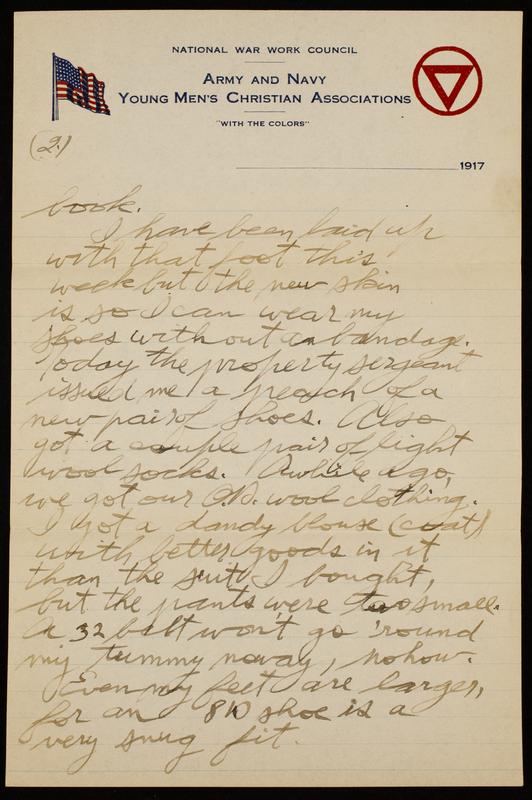 NATIONAL WAR WORK COUNCIL
ARMY AND NAVY
YOUNG MEN'S CHRISTIAN ASSOCIATIONS
"WITH THE COLORS"
(2.)
1917
book.
I have been laid up
with that foot this
week but the new skin
is so I can wear my
shoes without a bandage.
Today the property sergeant
issued me a peach of a
new pair of shoes. Also
got a couple pair of light
wool socks. Awhile ago,
we got our O.D. wool clothing.
I got a dandy blouse (coat)
with better goods in it
than the suit I bought,
but the pants were too small.
A 32 belt won't go 'round
my tummy noway, nohow.
Even my feet are larger,
for an 8 1/2 D shoe is a
very snug fit.